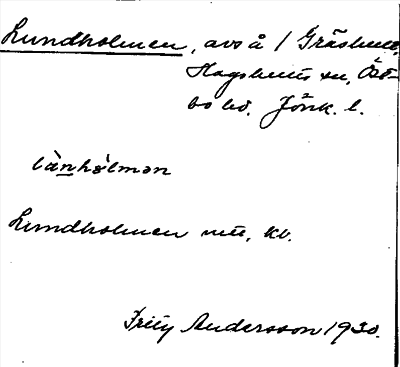 Lundholmen, avs å / Gräshult,
Hagshults sn, Öst-
bo hd. Jönk. l.
lànhòlmən
Lundholmen mtl, kv.
Fritz Andersson 1930.